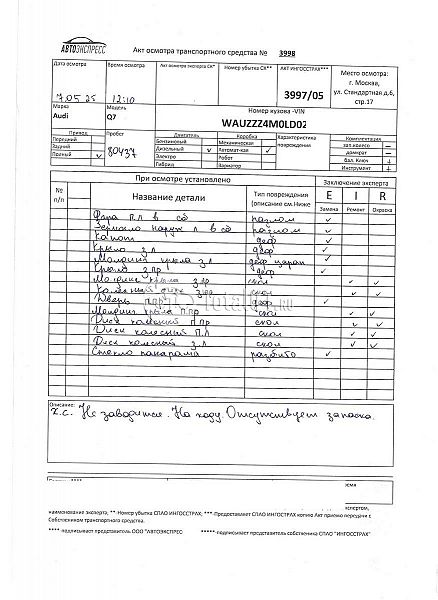 АВТОЭКСПРЕСС Акт осмотра транспортного средства № 3998
Дата осмотра Время осмотра Акт осмотра страховой СК* Номер убытка СК** АКТ ИНГОССТРАХ*** Место осмотра:
г. Москва,
ул. Стандартная д.6,
стр.17
7.05.25 12:10 3997/05
Марка Модель Номер кузова -VIN
Audi Q7 WAUZZZ4M0LD02
Привод Пробег Двигатель Коробка Характеристика повреждения Комплектация
Передний Бензиновый Механическая зап.колесо —
Задний Дизельный ✓ Автоматная ✓ домкрат —
Полный ✓ 80437 Электро Робот бал. Ключ +
Гибрид Вариатор Инструмент +
При осмотре установлено Заключение эксперта
№ п/п Название детали Тип повреждения (описание см.Ниже E I R
Замена Ремонт Окраска
Фара п.л в сб разлом ✓
Зеркало наруж л в сб разлом ✓
Капот деф ✓
Крыло з.л деф ✓
Молдинг крыла з.л деф царап ✓
Крыло з пр деф ✓
Молдинг крыла з пр скол ✓ ✓
скол ✓ ✓
Дверь деф ✓
Молдинг крыла п.пр скол ✓ ✓
Диск колесный п.пр скол ✓ ✓
Диск колесный п.л скол ✓ ✓
Диск колесный з.л скол ✓ ✓
Стекло панорама разбито ✓
Описание:
х.с. Не заводится. На ходу. Отсутствует запаска.
наименование эксперта, **-Номер убытка СПАО ИНГОССТРАХ, ***-Предоставляет СПАО ИНГОССТРАХ копию Акт приема передачи с
Собственником транспортного средства.
**** -подписывает представитель ООО "АВТОЭКСПРЕСС" *****-подписывает представитель собственника СПАО "ИНГОССТРАХ"